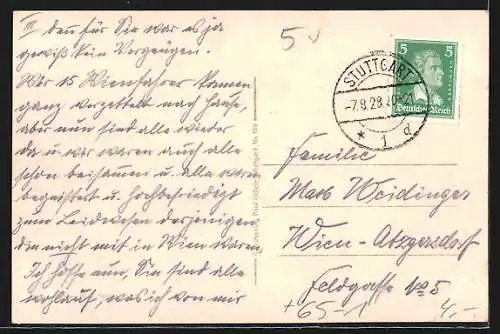 III den für Sie war es ja
gewiß kein Vergnügen.
Wir 15 Wienfahrer kamen
ganz verzettelt nach Hause,
aber nun sind alle wieder
da u. wir waren auch alle
schon beisammen u. alle waren
begeistert u. hochbefriedigt
zum Leidwesen desjenigen
die nicht mit in Wien waren
Ich hoffe nun, Sie sind alle
wohlauf, was ich von mir
5
STUTTGART
-7.8.28
* 1 d
5 5
Deutsches Reich
Familie
Max Weidinger
Wien-Atzgersdorf
Feldgasse No 5
+65-1 4,-